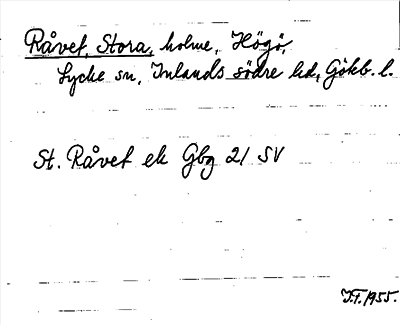 Råvet, Stora, holme, Högö,
Lycke sn, Inlands södre hd, Göteb. l.
St. Råvet ek Gbg 21 SV
J.F. 1955.